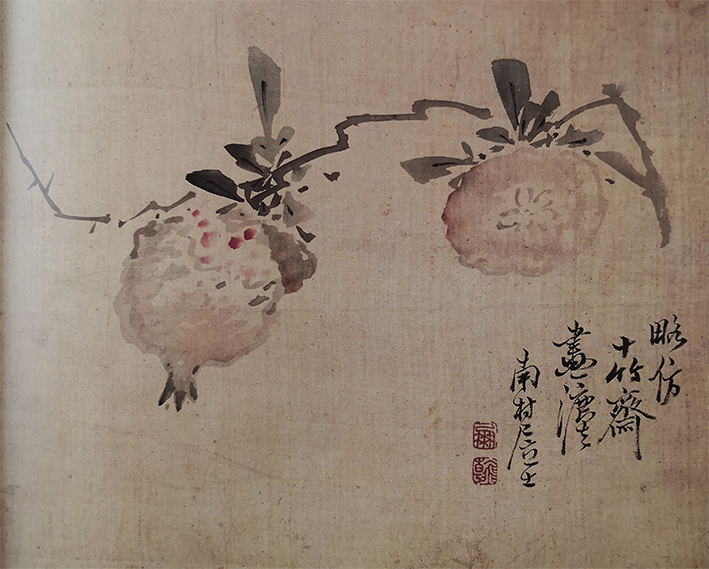 略仿
十竹齋
畫灋
南村居士